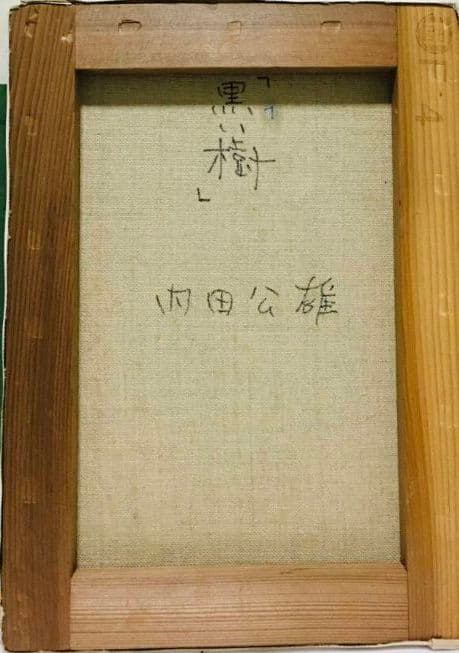 「黒い樹」
内田公雄
F4